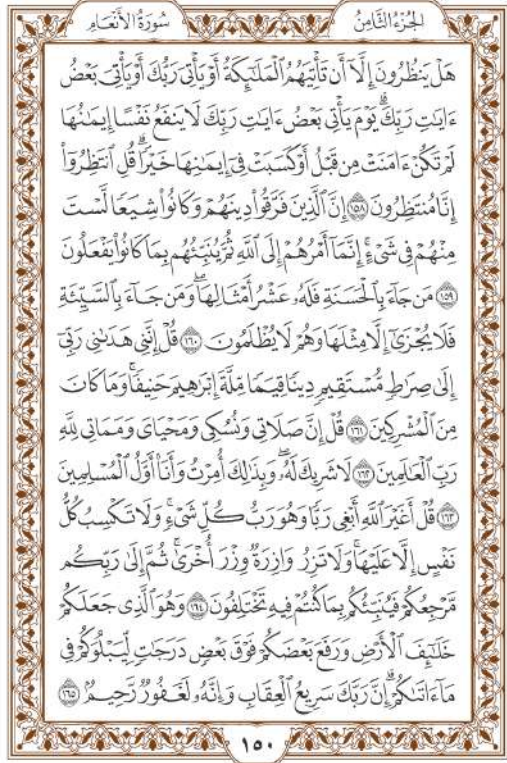 الجُزْءُ الثَّامِنُ سُورَةُ الأَنْعَامِ
هَلْ يَنظُرُونَ إِلَّآ أَن تَأْتِيَهُمُ ٱلْمَلَٰٓئِكَةُ أَوْ يَأْتِىَ رَبُّكَ أَوْ يَأْتِىَ بَعْضُ
ءَايَٰتِ رَبِّكَۗ يَوْمَ يَأْتِى بَعْضُ ءَايَٰتِ رَبِّكَ لَا يَنفَعُ نَفْسًا إِيمَٰنُهَا
لَمْ تَكُنْ ءَامَنَتْ مِن قَبْلُ أَوْ كَسَبَتْ فِىٓ إِيمَٰنِهَا خَيْرًاۗ قُلِ ٱنتَظِرُوٓا۟
إِنَّا مُنتَظِرُونَ ١٥٨ إِنَّ ٱلَّذِينَ فَرَّقُوا۟ دِينَهُمْ وَكَانُوا۟ شِيَعًا لَّسْتَ
مِنْهُمْ فِى شَىْءٍۚ إِنَّمَآ أَمْرُهُمْ إِلَى ٱللَّهِ ثُمَّ يُنَبِّئُهُم بِمَا كَانُوا۟ يَفْعَلُونَ
١٥٩ مَن جَآءَ بِٱلْحَسَنَةِ فَلَهُۥ عَشْرُ أَمْثَالِهَاۖ وَمَن جَآءَ بِٱلسَّيِّئَةِ
فَلَا يُجْزَىٰٓ إِلَّا مِثْلَهَا وَهُمْ لَا يُظْلَمُونَ ١٦٠ قُلْ إِنَّنِى هَدَىٰنِى رَبِّىٓ
إِلَىٰ صِرَٰطٍ مُّسْتَقِيمٍ دِينًا قِيَمًا مِّلَّةَ إِبْرَٰهِيمَ حَنِيفًاۚ وَمَا كَانَ
مِنَ ٱلْمُشْرِكِينَ ١٦١ قُلْ إِنَّ صَلَاتِى وَنُسُكِى وَمَحْيَاىَ وَمَمَاتِى لِلَّهِ
رَبِّ ٱلْعَٰلَمِينَ ١٦٢ لَا شَرِيكَ لَهُۥۖ وَبِذَٰلِكَ أُمِرْتُ وَأَنَا۠ أَوَّلُ ٱلْمُسْلِمِينَ
١٦٣ قُلْ أَغَيْرَ ٱللَّهِ أَبْغِى رَبًّا وَهُوَ رَبُّ كُلِّ شَىْءٍۚ وَلَا تَكْسِبُ كُلُّ
نَفْسٍ إِلَّا عَلَيْهَاۚ وَلَا تَزِرُ وَازِرَةٌ وِزْرَ أُخْرَىٰۚ ثُمَّ إِلَىٰ رَبِّكُم
مَّرْجِعُكُمْ فَيُنَبِّئُكُم بِمَا كُنتُمْ فِيهِ تَخْتَلِفُونَ ١٦٤ وَهُوَ ٱلَّذِى جَعَلَكُمْ
خَلَٰٓئِفَ ٱلْأَرْضِ وَرَفَعَ بَعْضَكُمْ فَوْقَ بَعْضٍ دَرَجَٰتٍ لِّيَبْلُوَكُمْ فِى
مَآ ءَاتَىٰكُمْۗ إِنَّ رَبَّكَ سَرِيعُ ٱلْعِقَابِ وَإِنَّهُۥ لَغَفُورٌ رَّحِيمٌۢ ١٦٥
١٥٠